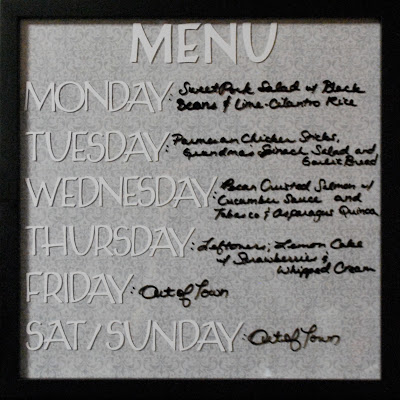 MENU
MONDAY: Sweet Pork Salad w/ Black
Beans & Lime-Cilantro Rice
TUESDAY: Parmesan Chicken Sticks,
Grandma's Spinach Salad and
Garlic Bread
WEDNESDAY: Pecan Crusted Salmon w/
Cucumber Sauce and
Tabasco & Asparagus Quinoa
THURSDAY: Leftovers; Lemon Cake
w/ Strawberries &
Whipped Cream
FRIDAY: Out of Town
SAT/SUNDAY: Out of Town